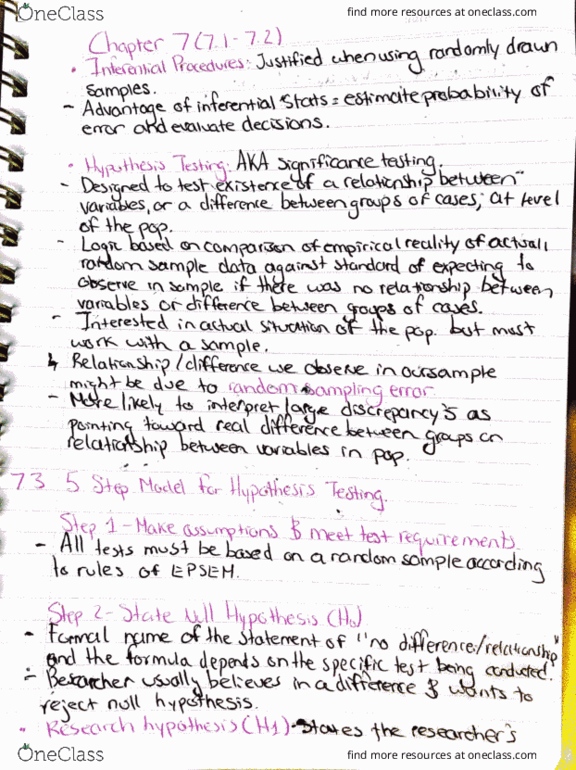 OneClass
find more resources at oneclass.com
Chapter 7 (7.1-7.2)
• Inferential Procedures: Justified when using randomly drawn
samples.
- Advantage of inferential stats = estimate probability of
error and evaluate decisions.
• Hypothesis Testing: AKA significance testing.
- Designed to test existence of a relationship between
variables, or a difference between groups of cases; at level
of the pop.
- Logic based on comparison of empirical reality of actual
random sample data against standard of expecting to
observe in sample if there was no relationship between
variables or difference between groups of cases.
- Interested in actual situation of the pop. but must
work with a sample.
↳ Relationship/difference we observe in our sample
might be due to random sampling error.
- More likely to interpret large discrepancy's as
pointing toward real difference between groups or
relationship between variables in pop.
7.3 5 Step Model for Hypothesis Testing.
Step 1 - Make assumptions & meet test requirements
- All tests must be based on a random sample according
to rules of EPSEM.
Step 2 - State Null Hypothesis (H₀)
- Formal name of the statement of "no difference/relationship"
and the formula depends on the specific test being conducted.
- Researcher usually believes in a difference & wants to
reject null hypothesis.
• Research hypothesis (H1) - States the researcher's
OneClass
find more resources at oneclass.com